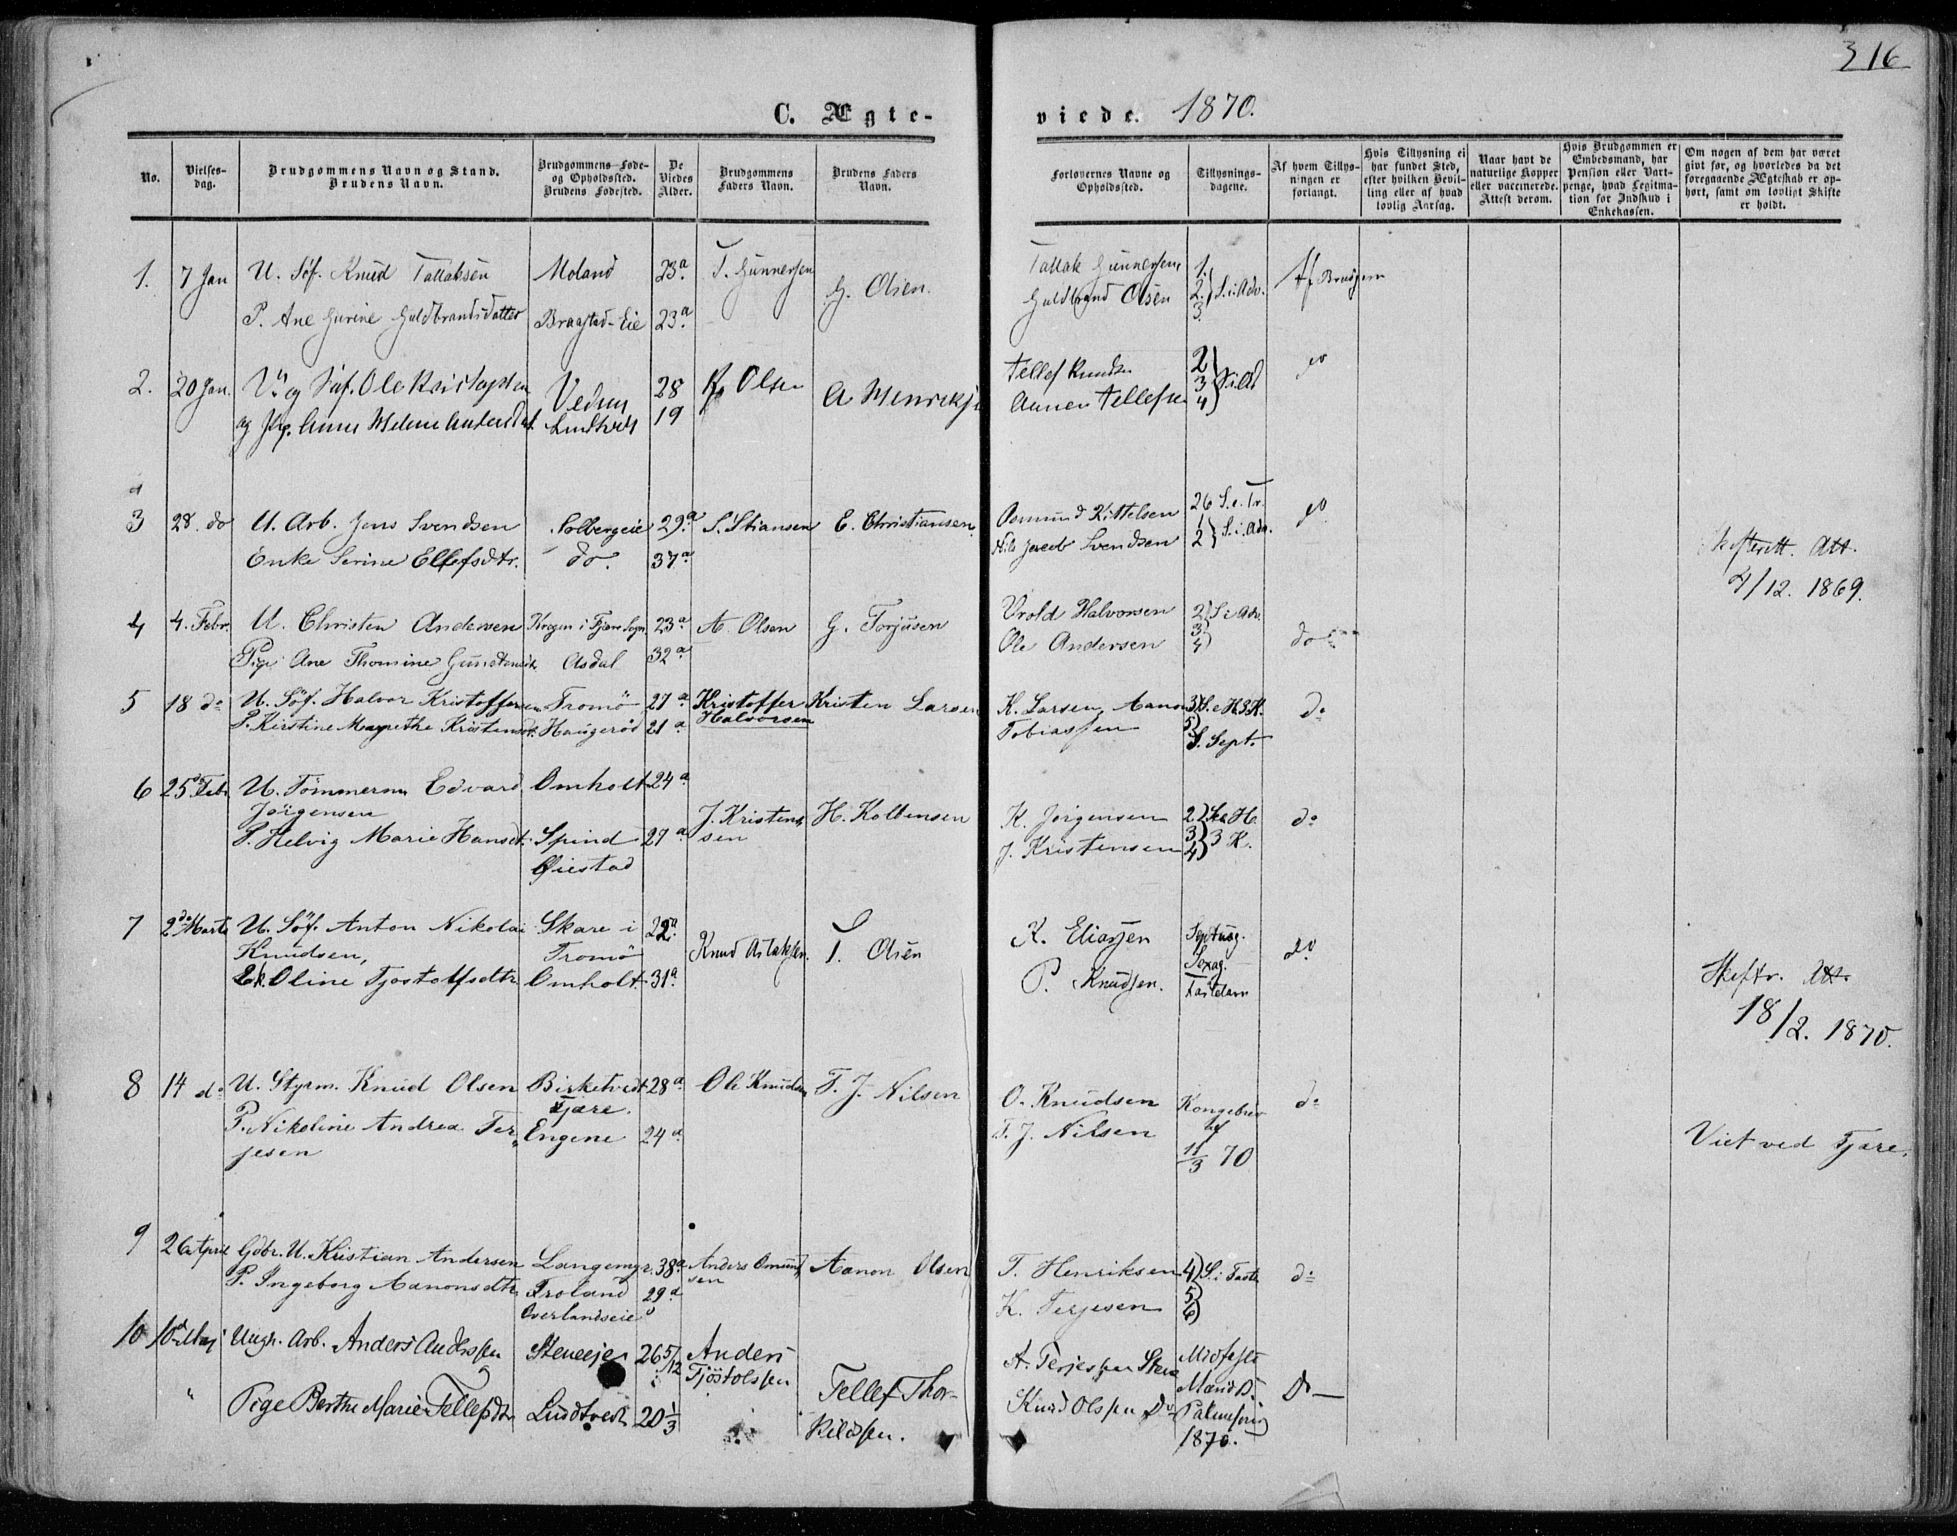 316
C. Ægte-
viede. 1870.
No.
Vielses-
dag.
Brudgommens Navn og Stand.
Brudens Navn.
Brudgommens Føde-
og Opholdsted.
Brudens Fødested.
De
Viedes
Alder.
Brudgommens
Faders Navn.
Brudens Faders
Navn.
Forlovernes Navne og
Opholdsted.
Tillysnings-
dagene.
Af hvem Tillys-
ningen er
forlangt.
Hvis Tillysning ei
har fundet Sted,
efter hvilken Bevil-
ling eller af hvad
lovlig Aarsag.
Naar havt de
naturlige Kopper
eller vaccinerede.
Attest derom.
Hvis Brudgommen er
Embedsmand, har
Pension eller Vart-
penge, hvad Legitima-
tion for Indskud i
Enkekassen.
Om nogen af dem har været
givt før, og hvorledes da det
foregaaende Ægteskab er op-
hørt, samt om lovligt Skifte
er holdt.
1. 7 Jan U. Søf. Knud Tallaksen Moland 23a T. Gunnersen G. Olsen. Tallak Gunnersen 1. 2. 3. S. i Adv. Af Brudgom
P. Ane Gurine Guldbrandsdatter Braastad-Eie 23a Guldbrand Olsen
2. 20 Jan. og Søf. Ole Kristophsen Vedum 28 K. Olsen A Henriksen Tellef Knudsen 2 3 4 do
og Pige. Anne Helene 19 Tellefsen
3 28. do U. Arb. Jens Svendsen Solbergeie 29a S. Stiansen E. Christiansen Osmund Kittelsen 26 S. e. Tr. do
Enke Serine Ellefsdtr. do. 37a Nils Jacob Svendsen 1 2 S. i. Adv. Skifterett. Att.
4/12. 1869.
4 4. Febr. U. Christen Andersen Kragen i Fjære Sogn 23a A. Olsen G. Torjusen Vrold Halvorsen 2 3 4 S i Adv.
Pige Ane Thomine Asdal 32a Ole Andersen do
5 18 do U. Søf. Halvor Kristoffersen Tromö 27a Kristoffer Kristen Larsen K. Larsen, Aanon 3 S. e. H. 3 K. do
P. Kirstine Magrethe Kristensdt. Haugerød 21a Halvorsen Tobiassen 5 S. Sept.
6 25de Feb. U. Tømmerm. Edvard Omholt 24a
Jörgensen J. Kristen- H. Kolbensen K. Jörgensen 2 S. e. H. do
P. Helvig Marie Hansdt. Spind 27a sen J. Kristensen 3 4 3 K.
Øiestad
7 2de Marts U. Søf. Anton Nikolai Skare i 22a Septuag.
Knudsen, Tromö Knud Aslaksen. T. Olsen K. Eliassen Sexag. do
Ek. Oline Tjostolfsdtr. Omholt 31a P. Knudsen. Fastelavn Skiftr. Att.
18/2. 1870.
8 14 do U. Styrm. Knud Olsen Birketvedt 28a Ole Knudsen T. J. Nilsen O. Knudsen Kongebrev do
P. Nikoline Andrea Ter- Fjære. T. J. Nilsen af
jesen Engene 24a 11/3 70 Viet ved Fjære.
9 26 April Gdbr. U. Kristian Andersen Langemyr. 38a Anders Omund- Aanon Olsen T. Henriksen 4 S. i Faste do
P. Ingeborg Aanonsdtr. Froland 29a sen K. Terjesen 5 6
Overlandseie
10 10de Maj Ungk. Arb. Anders Anderssen Steneeje 26 5/12 Anders A. Terjessen Stene Midfaste
Tjöstolssen Mariæ B.
" Pige Berthe Marie Tellefsdtr Lindtvedt 20 1/3 Tellef Thor- Knud Olssen do Palmesøn Do
kildsen. 1870.